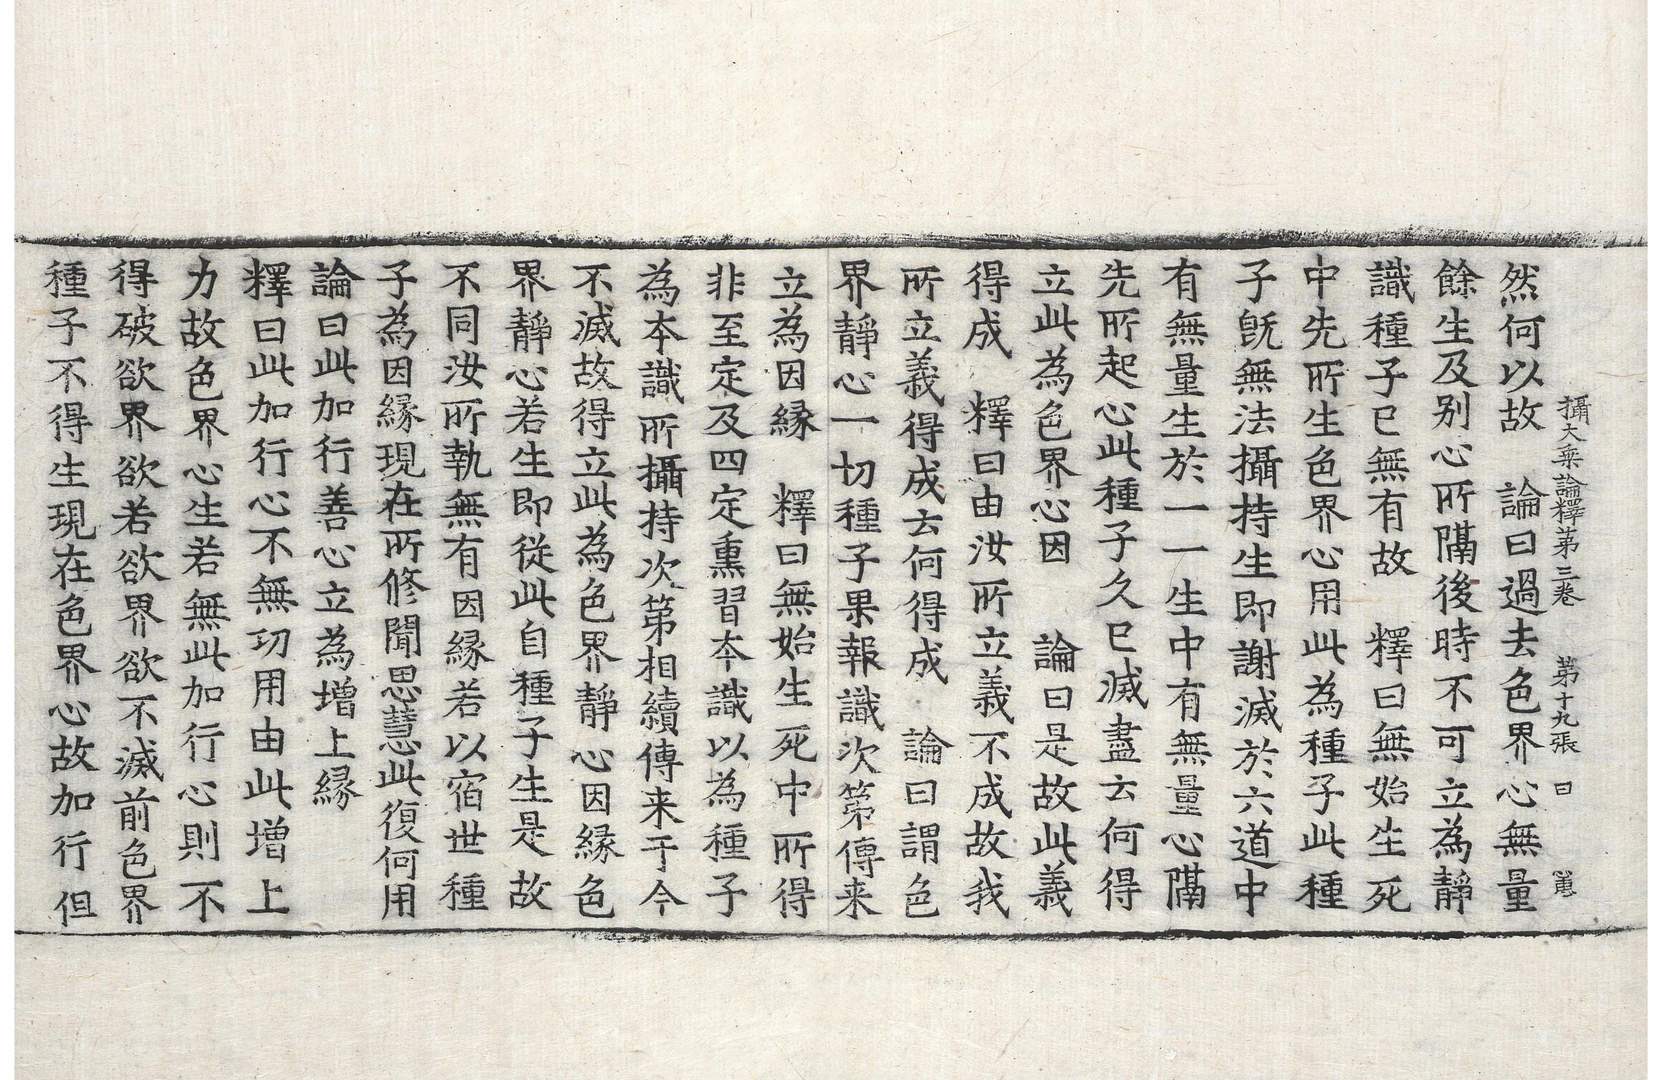 攝大乘論釋第三卷　第十九張　曰
然何以故　論曰過去色界心無量
餘生及别心所隔後時不可立為靜
識種子已無有故　釋曰無始生死
中先所生色界心用此為種子此種
子旣無法攝持生即謝滅於六道中
有無量生於一一生中有無量心隔
先所起心此種子久已滅盡云何得
立此為色界心因　論曰是故此義
得成　釋曰由汝所立義不成故我
所立義得成云何得成　論曰謂色
界靜心一切種子果報識次第傳来
立為因緣　釋曰無始生死中所得
非至定及四定熏習本識以為種子
為本識所攝持次第相續傳来于今
不滅故得立此為色界靜心因緣色
界靜心若生即從此自種子生是故
不同汝所執無有因緣若以宿世種
子為因緣現在所修聞思慧此復何用
論曰此加行善心立為增上緣
釋曰此加行心不無功用由此增上
力故色界心生若無此加行心則不
得破欲界欲若欲界欲不滅前色界
種子不得生現在色界心故加行但